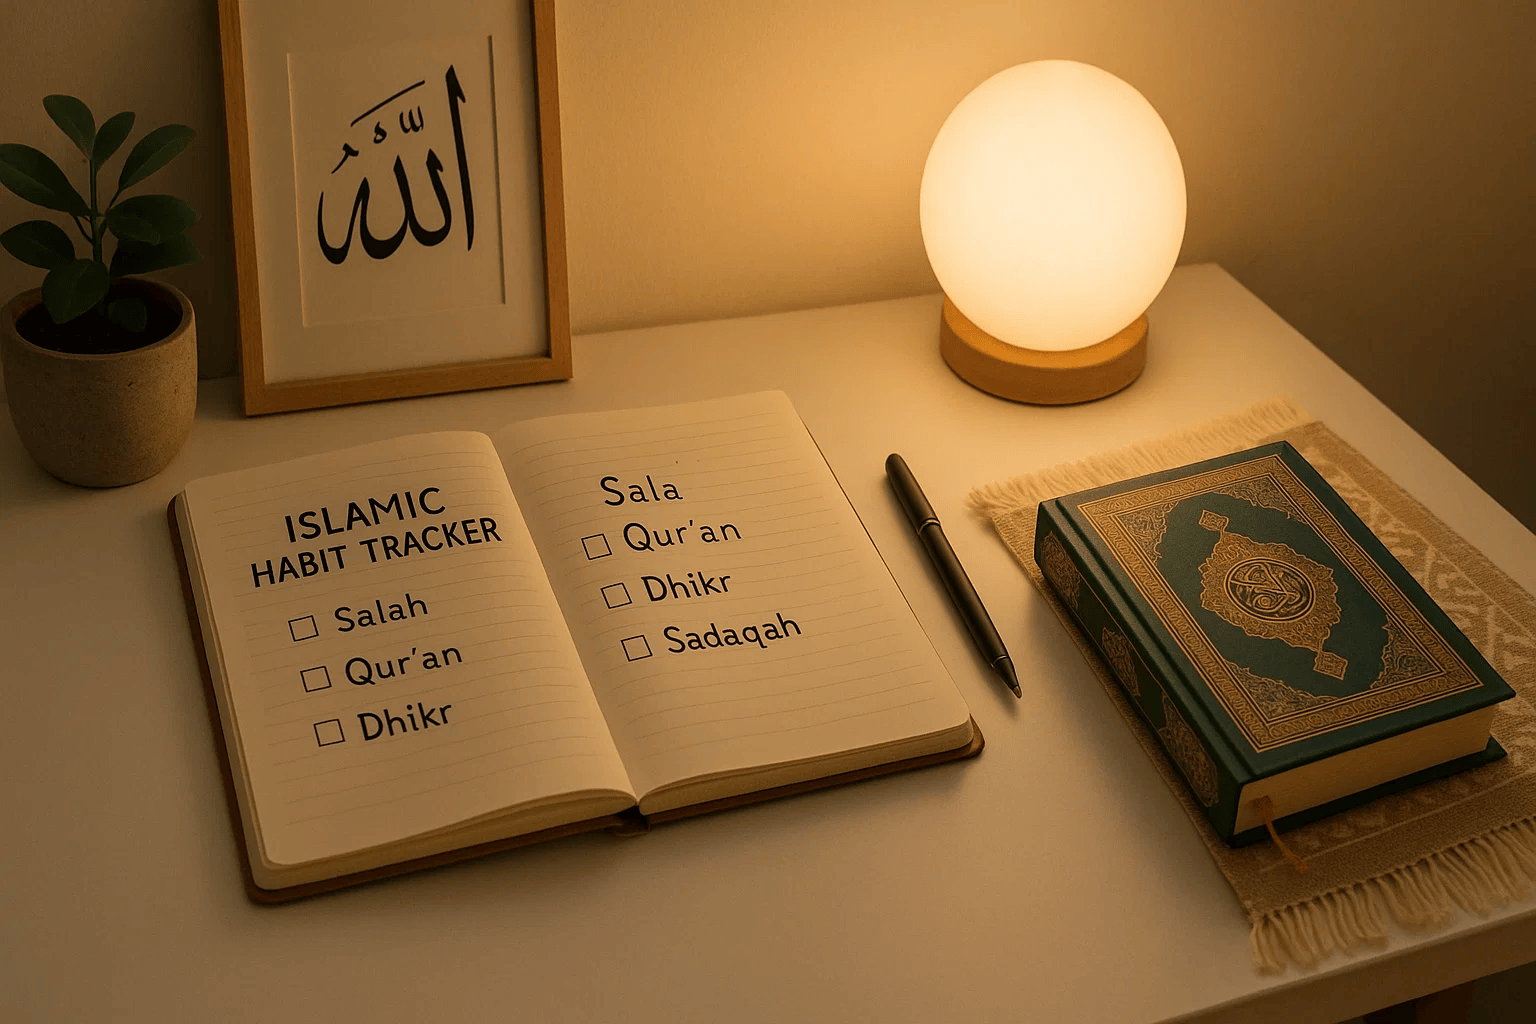 اللّٰهُ
ISLAMIC
HABIT TRACKER
Salah
Qur'an
Dhikr
Sala
Qur'an
Dhikr
Sadaqah